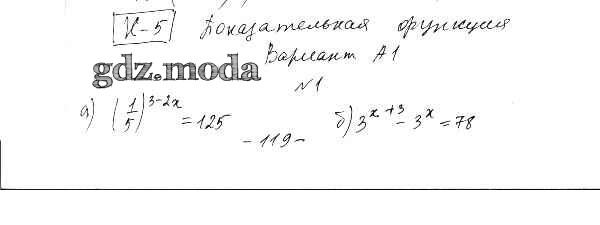 К-5 Показательная функция
Вариант А1
gdz.moda
№1
а) (1/5)^3-2x = 125 б) 3^x+3 - 3^x = 78
- 119 -